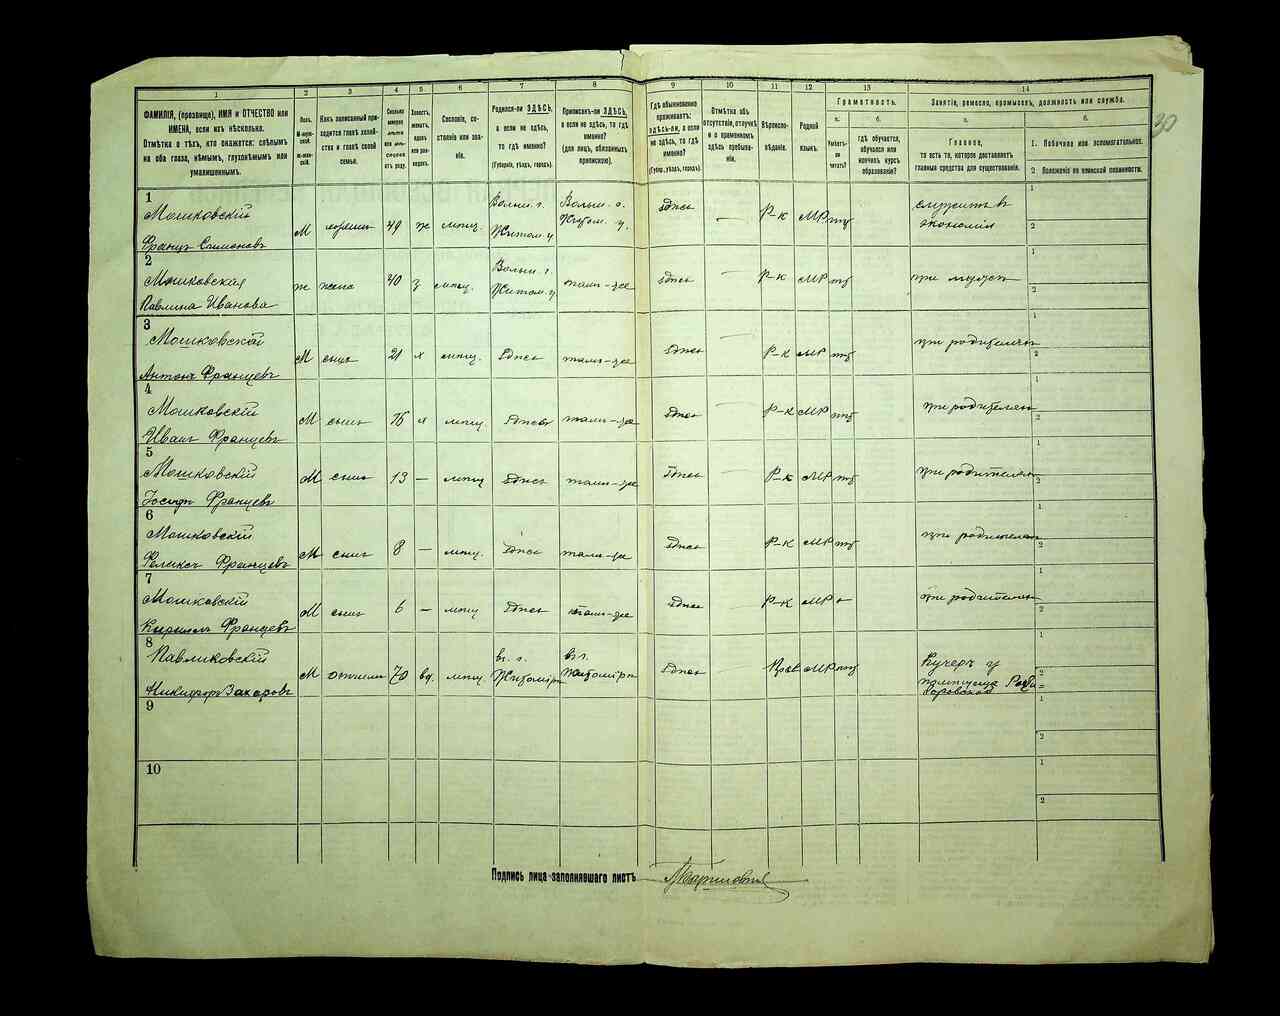 1 2 3 4 5 6 7 8 9 10 11 12 13 14
ФАМИЛІЯ, (прозвище), ИМЯ и ОТЧЕСТВО или ИМЕНА, если ихъ нѣсколько.
Отмѣтка о тѣхъ, кто окажется: слѣпымъ на оба глаза, нѣмымъ, глухонѣмымъ или умалишеннымъ.
Полъ.
М-мужской.
ж-женскій.
Какъ записанный приходится главѣ хозяйства и главѣ своей семьи.
Сколько минуло лѣтъ или мѣсяцевъ отъ роду.
Холостъ, женатъ, вдовъ или разведенъ.
Сословіе, состояніе или званіе.
Родился-ли ЗДѢСЬ, а если не здѣсь, то гдѣ именно?
(Губернія, уѣздъ, городъ).
Приписанъ-ли ЗДѢСЬ, а если не здѣсь, то гдѣ именно?
(для лицъ, обязанныхъ припискою).
Гдѣ обыкновенно проживаетъ: ЗДѢСЬ-ли, а если не здѣсь, то гдѣ именно?
(Губер., уѣздъ, городъ).
Отмѣтка объ отсутствіи, отлучкѣ и о временномъ здѣсь пребываніи.
Вѣроисповѣданіе.
Родной языкъ.
Грамотность.
а. б.
Умѣетъ-ли читать?
гдѣ обучается, обучался или кончилъ курсъ образованія?
Занятіе, ремесло, промыселъ, должность или служба.
а. б.
Главное,
то есть то, которое доставляетъ главныя средства для существованія.
1. Побочное или вспомогательное.
2 Положеніе по воинской повинности.
30
1
Мошковскій
Францъ Симоновъ
М хозяинъ 49 ж мѣщ. Волын. г. Житом. у Волын. г. Житом. у. здѣсь — Р-к служитъ въ экономіи
1
2
2
Мошковская
Павлина Ивановa
ж жена 40 з мѣщ. Волын. г. Житом. у тамъ-же здѣсь — Р-к при мужѣ
1
2
3
Мошковскій
Антонъ Францевъ
М сынъ 21 х мѣщ. здѣсь тамъ-же здѣсь — Р-к при родителяхъ
1
2
4
Мошковскій
Иванъ Францевъ
М сынъ 16 х мѣщ. здѣсь тамъ-же здѣсь — Р-к при родителяхъ
1
2
5
Мошковскій
Іосифъ Францевъ
М сынъ 13 — мѣщ здѣсь тамъ-же здѣсь — Р-к при родителяхъ
1
2
6
Мошковскій
Феликсъ Францевъ
М сынъ 8 — мѣщ. здѣсь тамъ-же здѣсь — Р-к при родителяхъ
1
2
7
Мошковскій
Кириллъ Францевъ
М сынъ 6 — мѣщ здѣсь тамъ-же здѣсь — Р-к при родителяхъ
1
2
8
Павликовскій
Никифоръ Захаровъ
М 70 вд. мѣщ в. г. Житоміръ в. г. Житоміръ здѣсь — Прав Кучеръ у помѣщика
1
2
9
1
2
10
1
2
Подпись лица заполнявшаго листъ